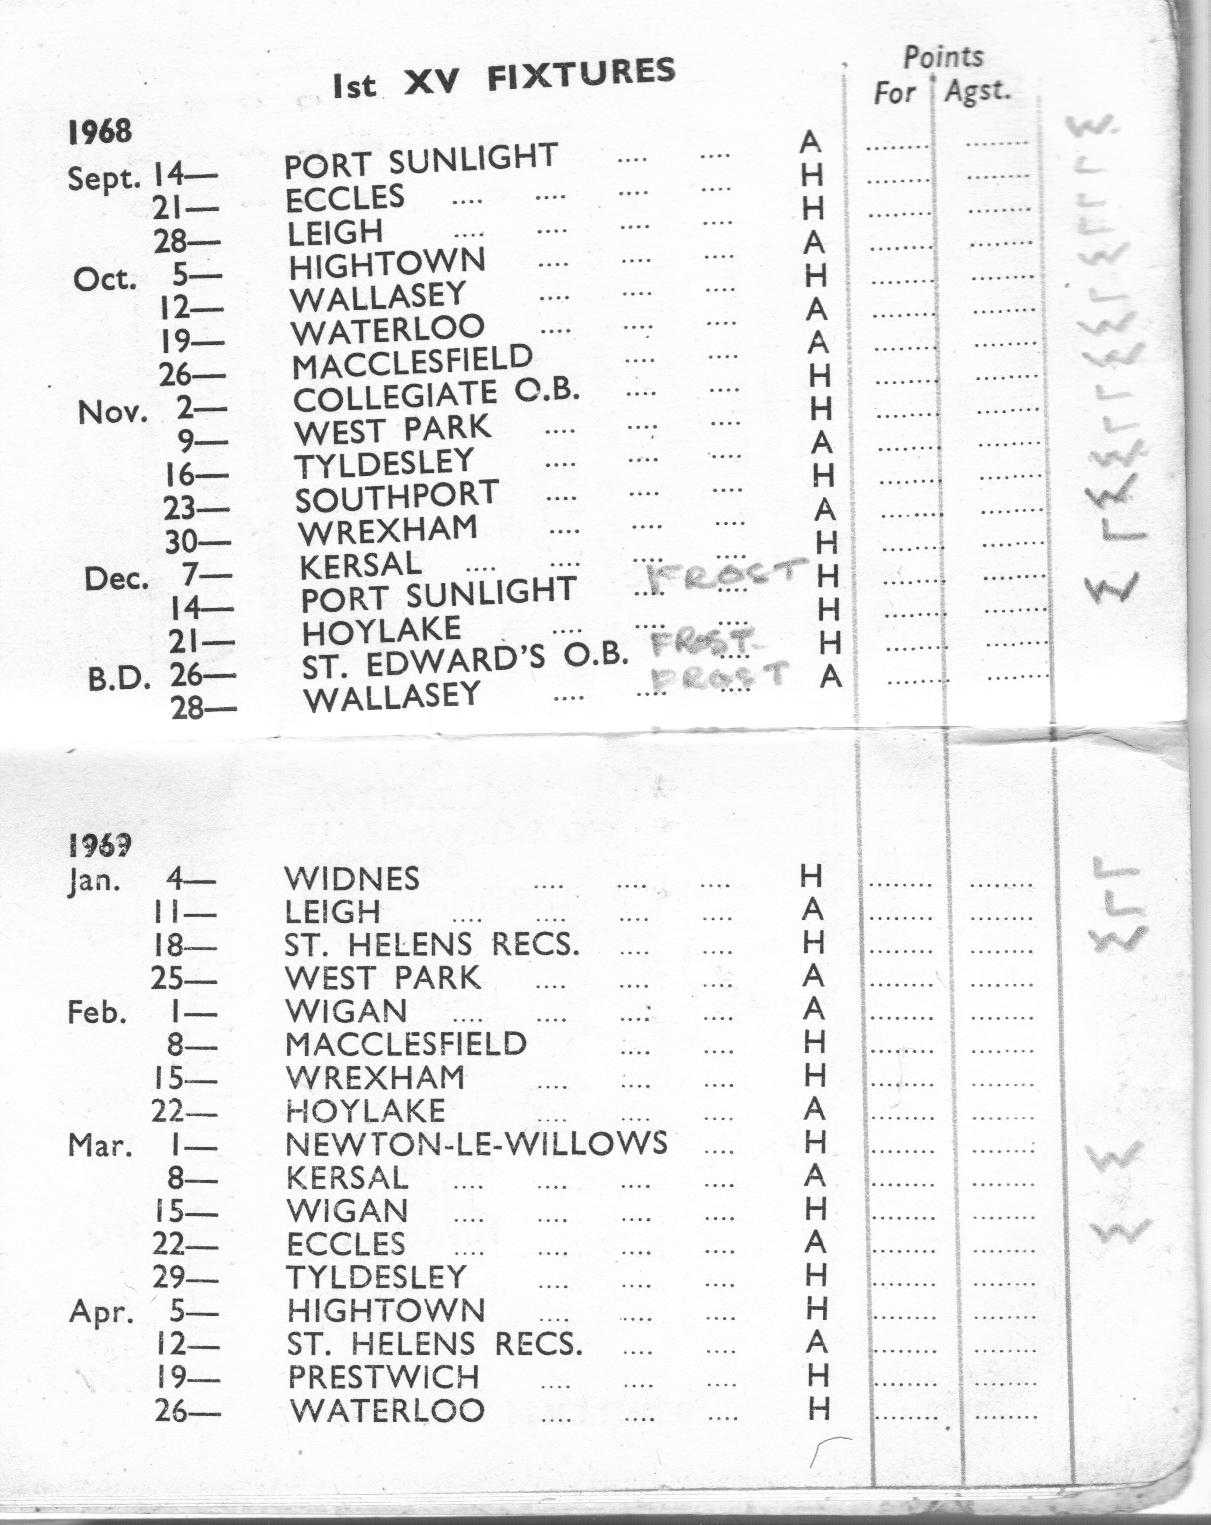 1st XV FIXTURES
Points
For Agst.
1968
Sept. 14— PORT SUNLIGHT .... .... A ........ ........ W
21— ECCLES .... .... .... .... H ........ ........ L
28— LEIGH .... .... .... .... H ........ ........ L
Oct. 5— HIGHTOWN .... .... .... A ........ ........ L
12— WALLASEY .... .... .... H ........ ........ W
19— WATERLOO .... .... .... A ........ ........ L
26— MACCLESFIELD .... .... A ........ ........ W
Nov. 2— COLLEGIATE O.B. .... .... H ........ ........ W
9— WEST PARK .... .... .... H ........ ........ L
16— TYLDESLEY .... .... .... A ........ ........ L
23— SOUTHPORT .... .... .... H ........ ........ W
30— WREXHAM .... .... .... A ........ ........ W
Dec. 7— KERSAL .... .... .... .... H ........ ........ L
14— PORT SUNLIGHT .... .... FROST H ........ ........
21— HOYLAKE .... .... .... H ........ ........ W
B.D. 26— ST. EDWARD'S O.B. .... FROST H ........ ........
28— WALLASEY .... .... .... FROST A ........ ........
1969
Jan. 4— WIDNES .... .... .... H ........ ........ L
11— LEIGH .... .... .... .... A ........ ........ L
18— ST. HELENS RECS. .... .... H ........ ........ W
25— WEST PARK .... .... .... A ........ ........
Feb. 1— WIGAN .... .... .... .... A ........ ........
8— MACCLESFIELD .... .... H ........ ........
15— WREXHAM .... .... .... H ........ ........
22— HOYLAKE .... .... .... A ........ ........
Mar. 1— NEWTON-LE-WILLOWS .... H ........ ........ W
8— KERSAL .... .... .... .... A ........ ........
15— WIGAN .... .... .... .... H ........ ........ W
22— ECCLES .... .... .... .... A ........ ........
29— TYLDESLEY .... .... .... H ........ ........
Apr. 5— HIGHTOWN .... .... .... H ........ ........
12— ST. HELENS RECS. .... .... A ........ ........
19— PRESTWICH .... .... .... H ........ ........
26— WATERLOO .... .... .... H ........ ........